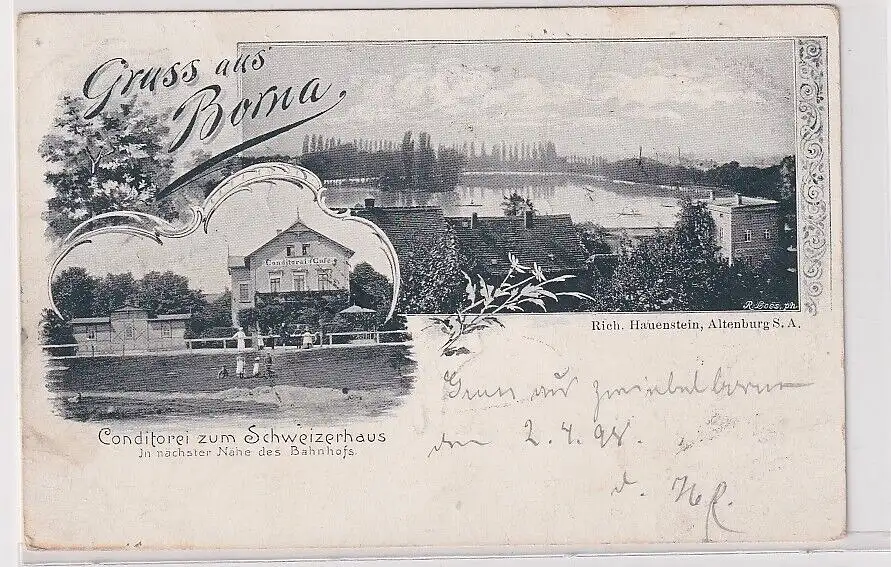 Gruss aus
Borna.
Conditorei & Café
R. Loës, ph.
Rich. Hauenstein, Altenburg S. A.
Gruss aus Zwiebelborna
den 2. 4. 98.
d.
Conditorei zum Schweizerhaus
In nächster Nähe des Bahnhofs.